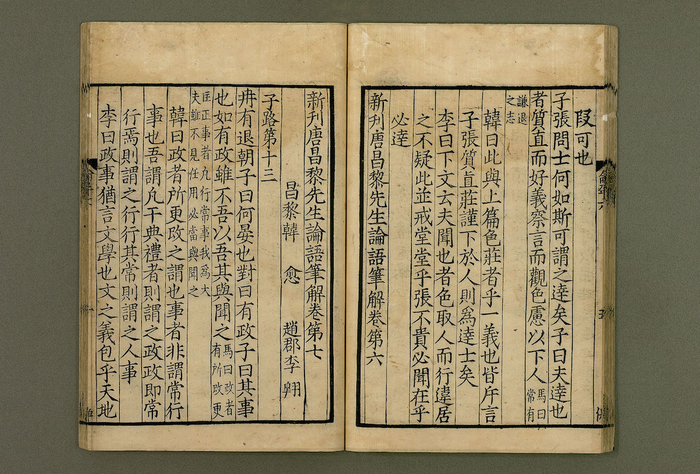 叚可也
子張問士何如斯可謂之達矣子曰夫達也
者質直而好義察言而觀色慮以下人馬曰常有
謙退之志
韓曰此與上篇色莊者乎一義也皆斥言
子張質直莊謹下於人則爲達士矣
李曰下文云夫聞也者色取人而行違居
之不疑此並戒堂堂乎張不貴必聞在乎
必達
新刊唐昌黎先生論語筆解卷第六
新刊唐昌黎先生論語筆解卷第七
昌黎韓 愈 趙郡李 翱
子路第十三
冉有退朝子曰何晏也對曰有政子曰其事
也如有政雖不吾以吾其與聞之馬曰政者有所改更
匡正事者凡行常事我爲大夫雖不見任用必當與聞之
韓曰政者所更改之謂也事者非謂常行
事也吾謂凡干典禮者則謂之政政即常
行焉則謂之行行其常則謂之人事
李曰政事猶言文學也文之義包乎天地